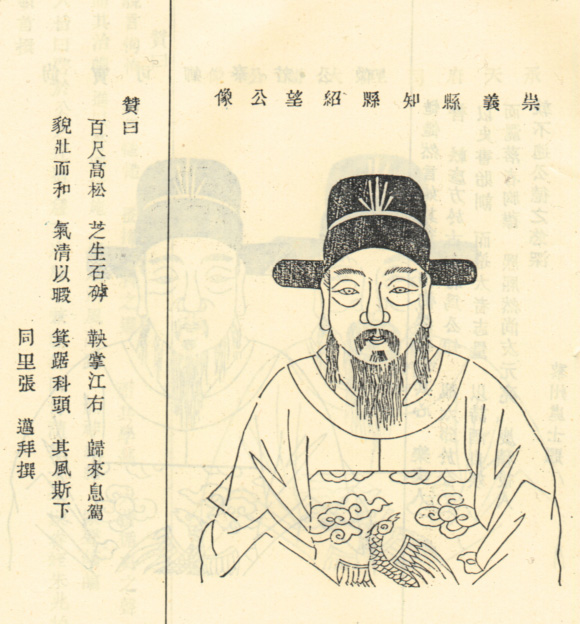 崇義縣知縣紹望公像
贊曰
百尺高松 芝生石磷 鞅掌江右 歸來息駕
貌壯而和 氣清以暇 箕踞科頭 其風斯下
同里張 邁拜撰